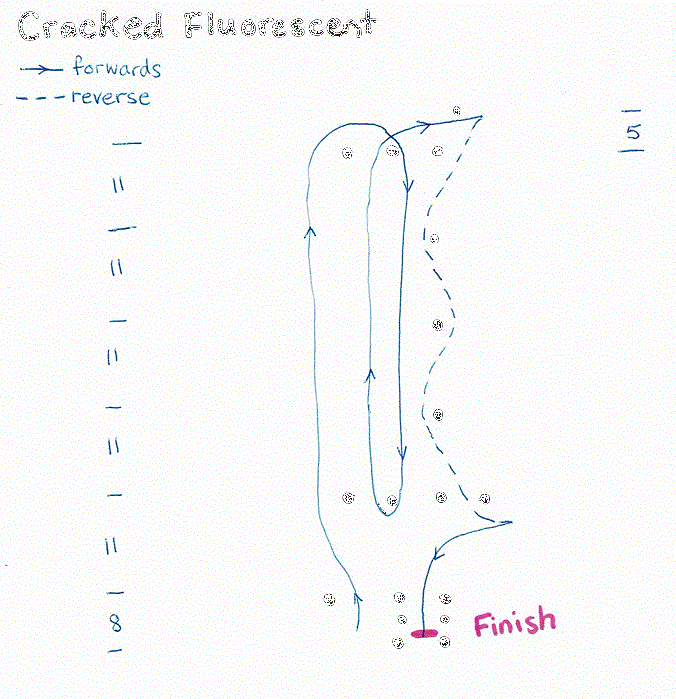 Cracked Fluorescent
forwards
reverse
5
11
11
11
11
11
8
Finish